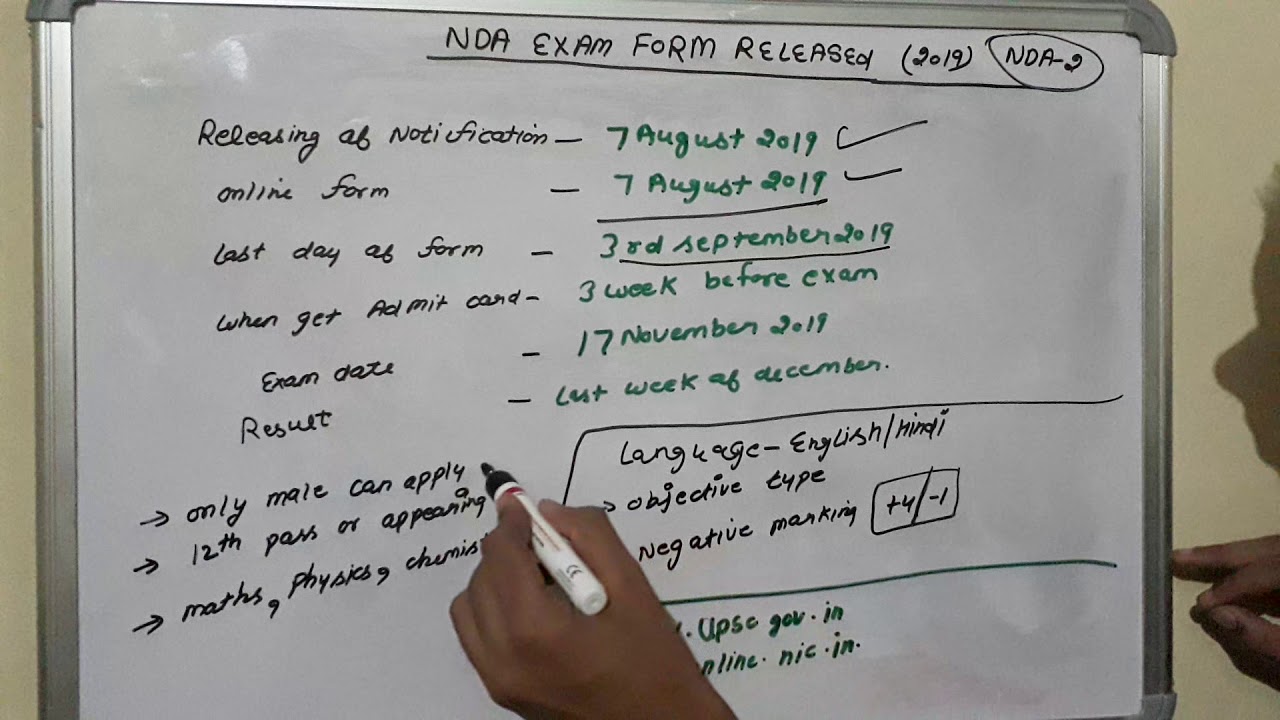 NDA EXAM FORM RELEASED (2019) NDA-2
Releasing of Notification - 7 August 2019
online form - 7 August 2019
Last day of form - 3rd september 2019
When get Admit card - 3 week before exam
Exam date - 17 November 2019
Result - Last week of december.
→ only male can apply
→ 12th pass or appearing
→ maths, physics,
Language - English/Hindi
→ objective type
Negative marking +4/-1
.upsc.gov.in
.nic.in.